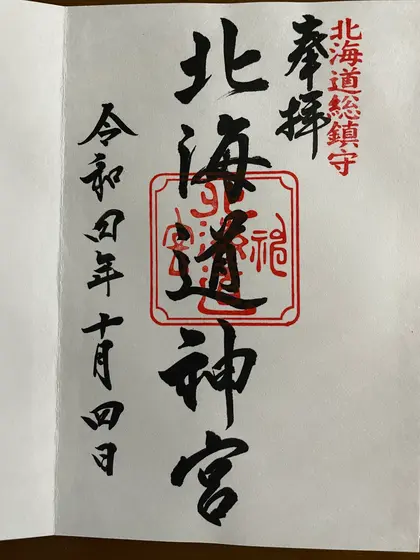 北海道総鎮守
奉拝
北海道神宮
北海道神宮
令和四年十月四日